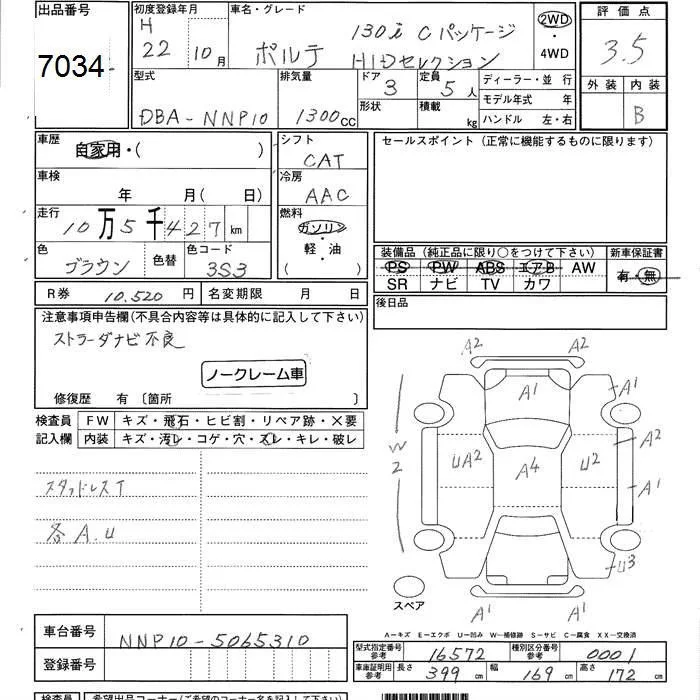 出品番号
7034
初度登録年月
H
22 10月
車名・グレード
ポルテ 130i Cパッケージ
HIDセレクション
2WD
・
4WD
評価点
3.5
外装 内装
B
型式
DBA-NNP10
排気量
1300cc
ドア
3
形状
定員
5人
積載
kg
ディーラー・並行
モデル年式 年
ハンドル 左・右
車歴
自家用・( )
車検
年 月( 日)
走行
10万5千427km
色
ブラウン
色替
色コード
3S3
シフト
CAT
冷房
AAC
燃料
ガソリン
・
軽・油
( )
セールスポイント(正常に機能するものに限ります)
装備品(純正品に限り○をつけて下さい)
PS PW ABS エアB AW
SR ナビ TV カワ
新車保証書
有・無
後日品
R券 10.520円
名変期限 月 日
注意事項申告欄(不具合内容等は具体的に記入して下さい)
ストラーダナビ不良
ノークレーム車
修復歴 有〔箇所 〕
検査員
記入欄
FW キズ・飛石・ヒビ割・リペア跡・×要
内装 キズ・汚レ・コゲ・穴・スレ・キレ・破レ
スタッドレスT
各A.U
A2 A2
A1 A1
W2
UA2 A4 U2
A2
A1
U3
A1 A1
スペア
A-キズ E-エクボ U-凹み W-補修跡 S-サビ C-腐食 XX-交換済
車台番号
NNP10-5065310
登録番号
型式指定番号
参考
16572
種別区分番号
参考
0001
車庫証明用
参考
長さ 399cm
幅 169cm
高さ 172cm
検査員
希望出品コーナー(ご希望のコーナー